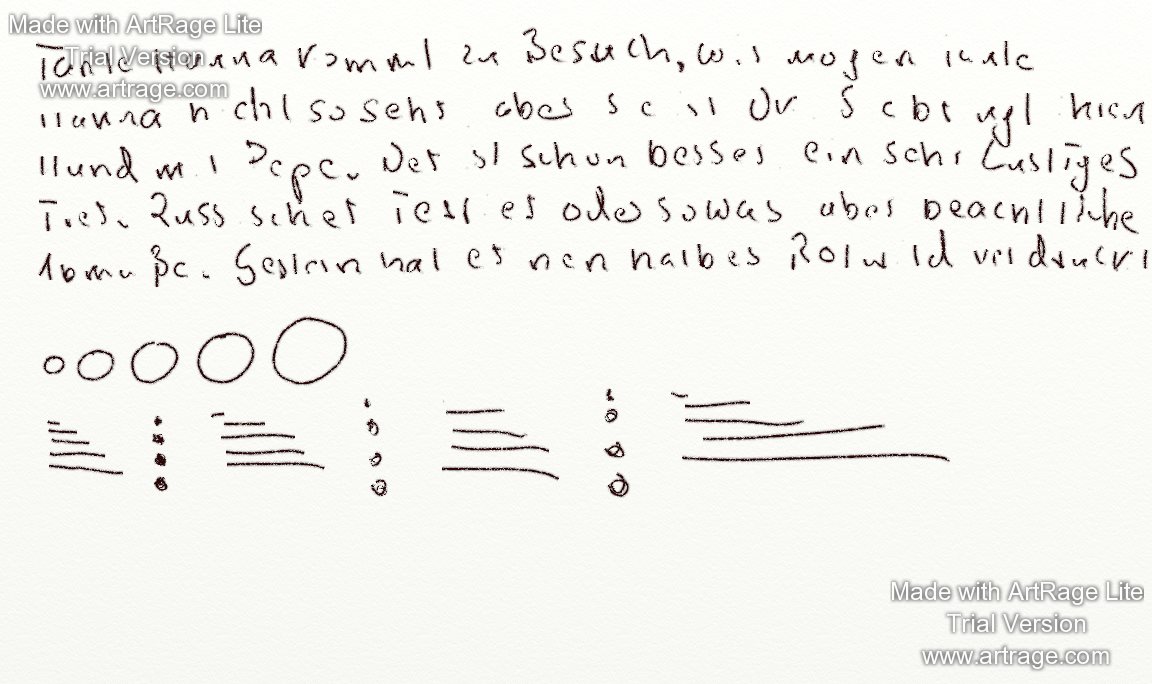 Made with ArtRage Lite
Trial Version
www.artrage.com
Tante Hanna kommt zu Besuch, wir mogen Tante
Hanna nicht so sehr aber se is Ok. S e bringt
Hund mit Pepe. Der ist schon besser ein sehr Lustiges
Tier. Russischer er oder sowas aber beachtliche
Gestern hat er nen halbes Rotwild verdruckt
Made with ArtRage Lite
Trial Version
www.artrage.com